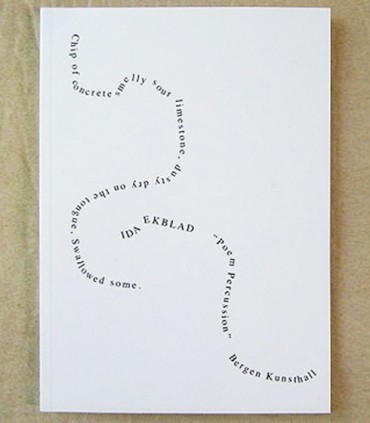 Chip of concrete smelly sour limestone, dusty dry on the tongue. Swallowed some.
IDA EKBLAD
"Poem Percussion"
Bergen Kunsthall